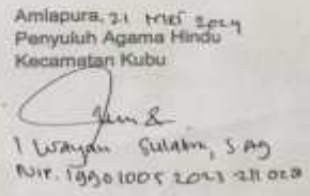 Amlapura, 21 Mei 2024
Penyuluh Agama Hindu
Kecamatan Kubu
I Wayan Sulatra, S.Ag
NIP. 19901005 2023 211 023